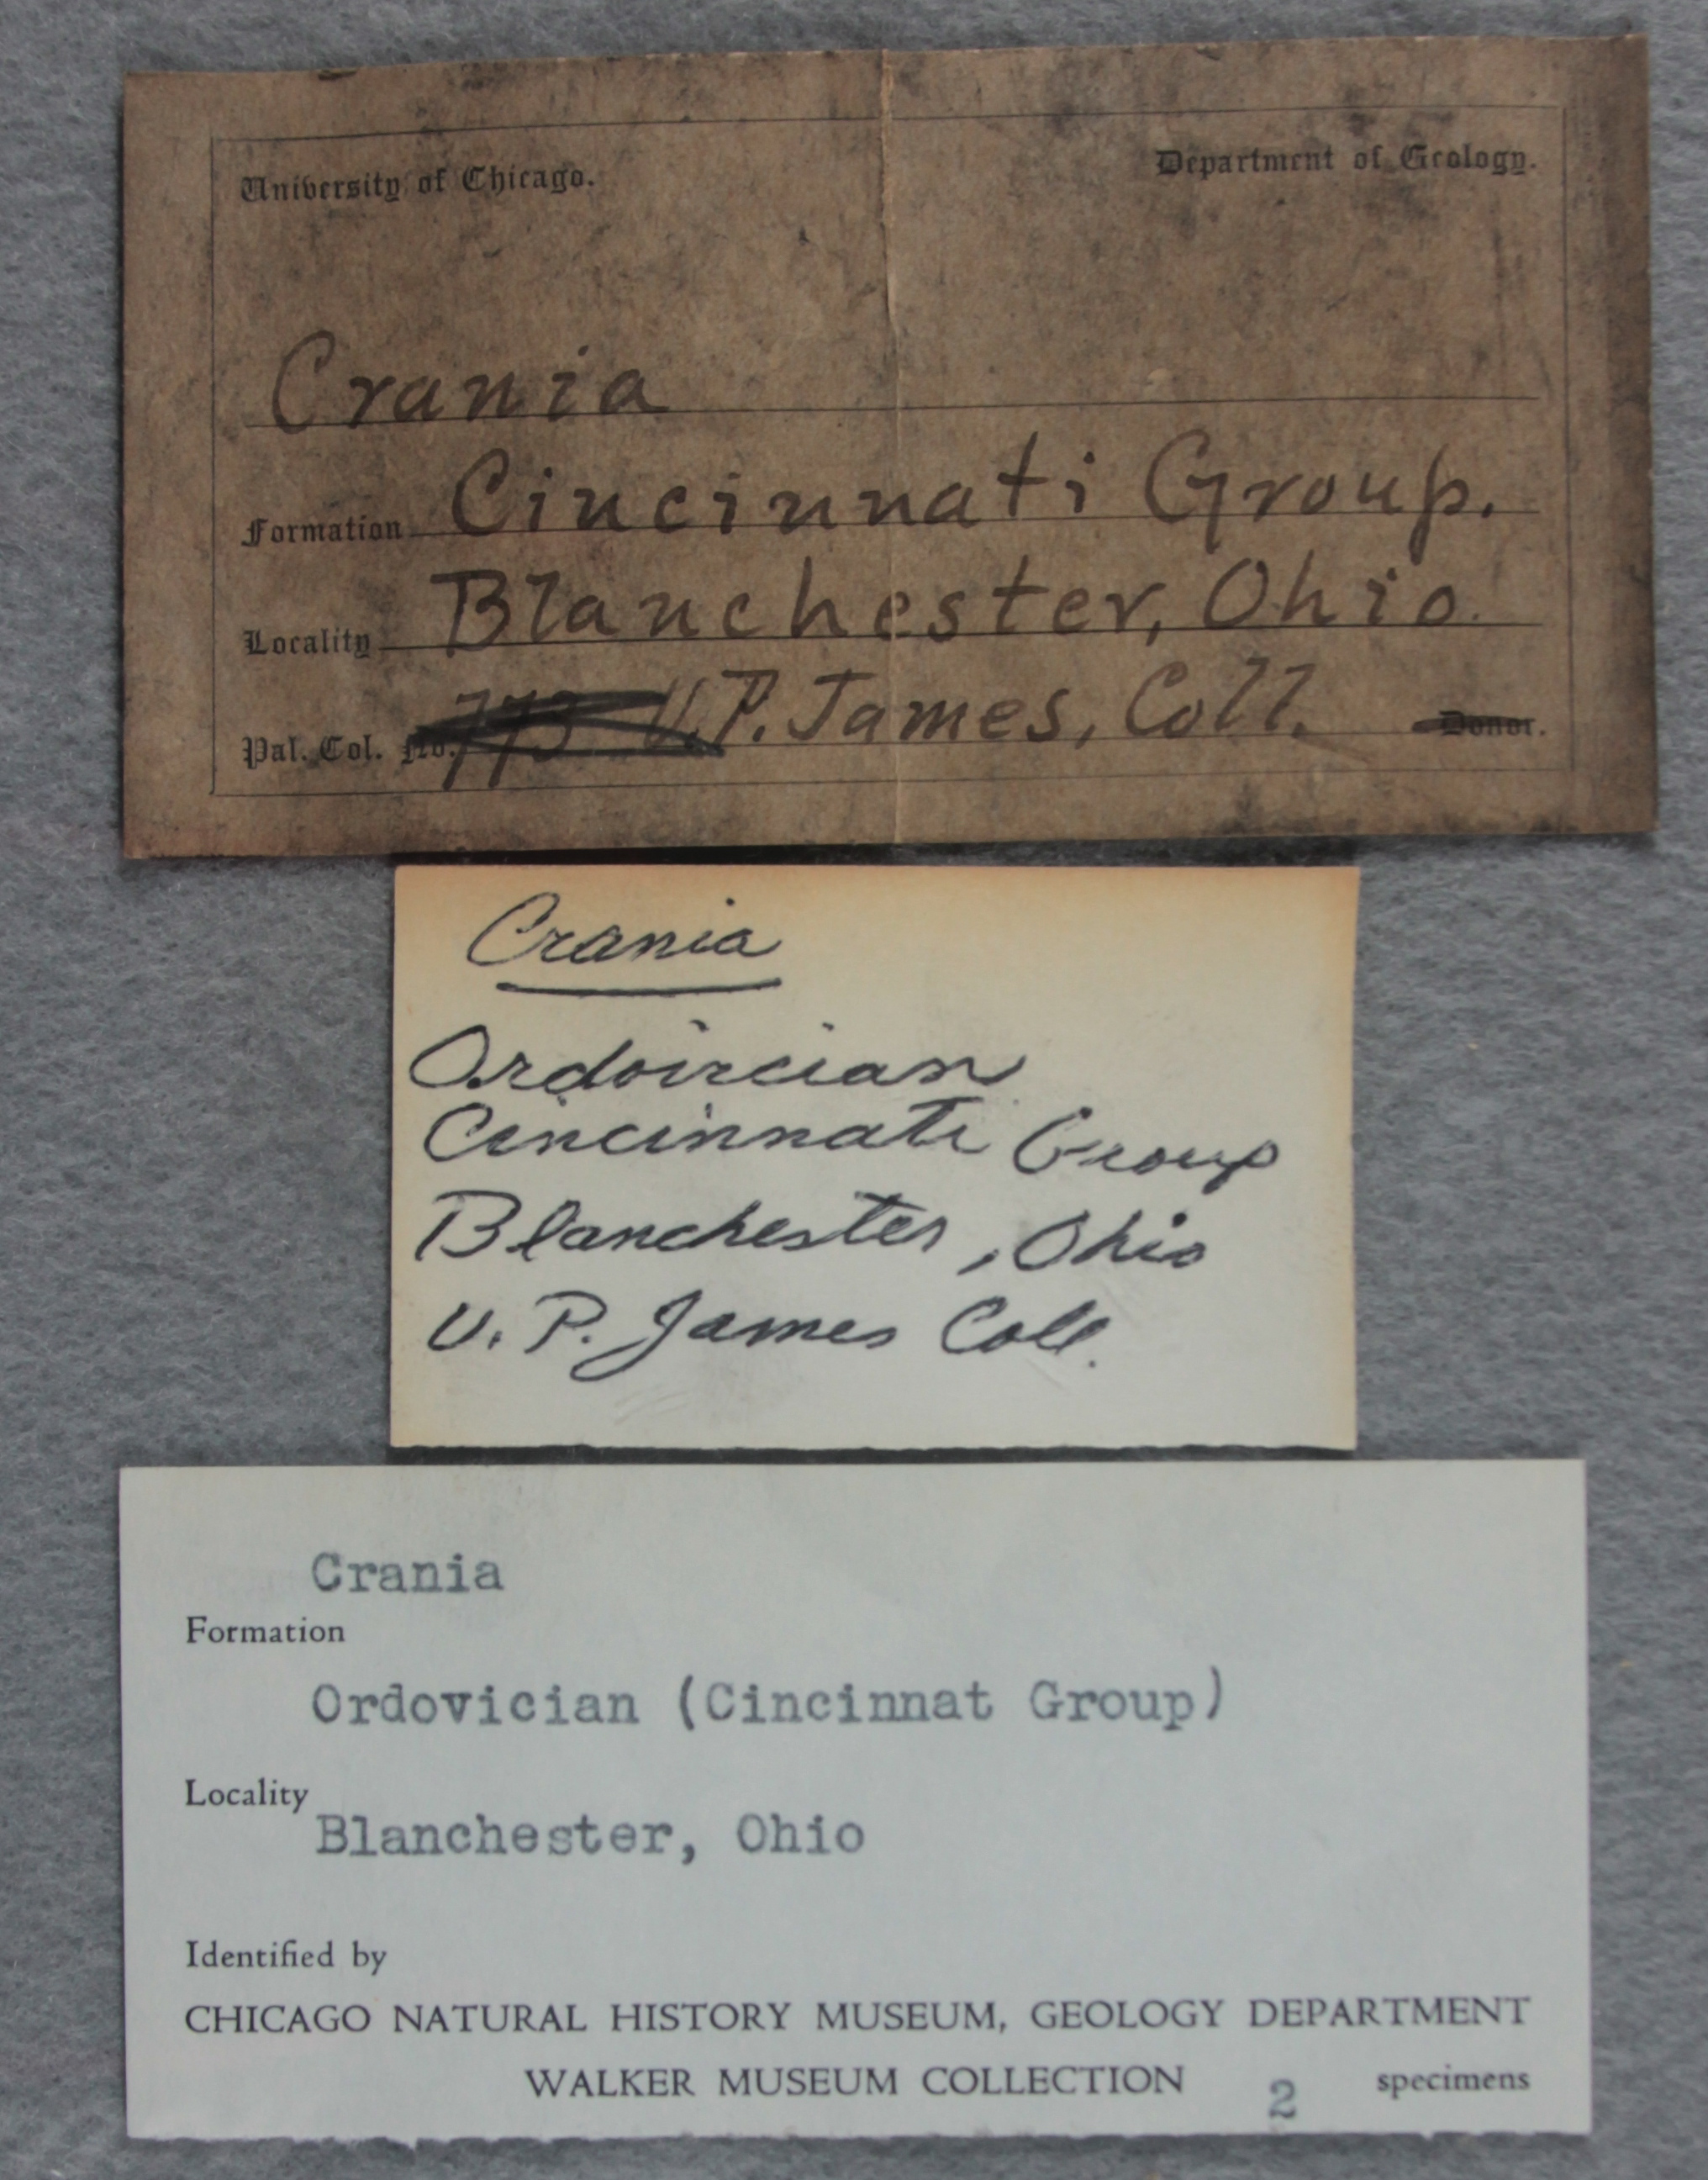 University of Chicago. Department of Geology.
Crania
Formation Cincinnati Group.
Locality Blanchester, Ohio.
Pal. Col. No. 773 U.P. James, Coll. Donor.
Crania
Ordoivician
Cincinnati Group
Blanchester, Ohio
U. P. James Coll.
Crania
Formation
Ordovician (Cincinnat Group)
Locality
Blanchester, Ohio
Identified by
CHICAGO NATURAL HISTORY MUSEUM, GEOLOGY DEPARTMENT
WALKER MUSEUM COLLECTION 2 specimens